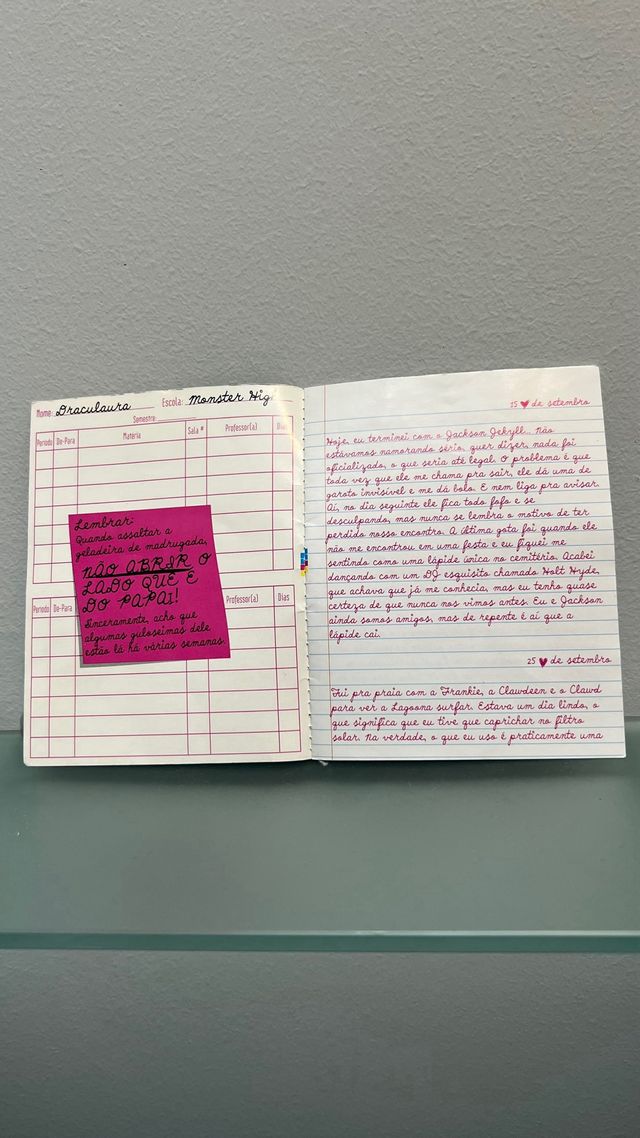 Nome: Draculaura Escola: Monster Hig
Semestre:
Período De-Para Matéria Sala # Professor(a) Dias
Lembrar:
Quando assaltar a
geladeira de madrugada,
NÃO ABRIR O
LADO QUE É
DO PAPAI!
Sinceramente, acho que
algumas guloseimas dele
estão lá há várias semanas.
Período De-Para Professor(a) Dias
15 de setembro
Hoje, eu terminei com o Jackson Jekyll... Não
estávamos namorando sério, quer dizer, nada foi
oficializado, o que seria até legal. O problema é que
toda vez que ele me chama pra sair, ele dá uma de
garoto invisível e me dá bolo. E nem liga pra avisar.
Aí, no dia seguinte ele fica todo fofo e se
desculpando, mas nunca se lembra o motivo de ter
perdido nosso encontro. A última gota foi quando ele
não me encontrou em uma festa e eu fiquei me
sentindo como uma lápide única no cemitério. Acabei
dançando com um DJ esquisito chamado Holt Hyde,
que achava que já me conhecia, mas eu tenho quase
certeza de que nunca nos vimos antes. Eu e Jackson
ainda somos amigos, mas de repente é aí que a
lápide cai.
25 de setembro
Fui pra praia com a Frankie, a Clawdeen e o Clawd
para ver a Lagoona surfar. Estava um dia lindo, o
que significa que eu tive que caprichar no filtro
solar. Na verdade, o que eu uso é praticamente uma